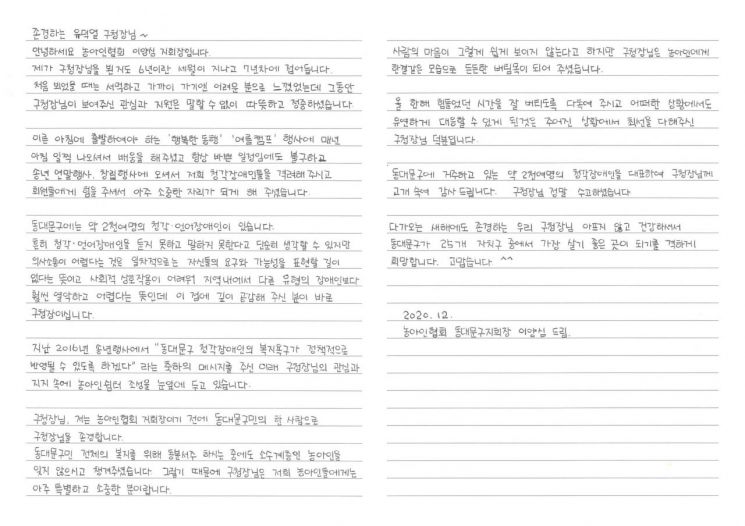 존경하는 유덕열 구청장님 ~
안녕하세요 농아인협회 이양심 지회장입니다.
제가 구청장님을 뵌지도 6년이란 세월이 지나고 7년차에 접어듭니다.
처음 뵈었을 때는 서먹하고 가까이 가기엔 어려운 분으로 느꼈었는데 그동안
구청장님이 보여주신 관심과 지원은 말할 수 없이 따뜻하고 정중하셨습니다.
이른 아침에 출발하여야 하는 '행복한 동행' '여름캠프' 행사에 매년
아침 일찍 나오셔서 배웅을 해주셨고 항상 바쁜 일정임에도 불구하고
송년 연말행사, 창립행사에 오셔서 저희 청각장애인들을 격려해주시고
회원들에게 힘을 주셔서 아주 소중한 자리가 되게 해 주셨습니다.
동대문구에는 약 2천여명의 청각·언어장애인이 있습니다.
흔히 청각·언어장애인을 듣지 못하고 말하지 못한다고 단순히 생각할 수 있지만
의사소통이 어렵다는 것은 일차적으로는 자신들의 요구와 가능성을 표현할 길이
없다는 뜻이고 사회적 상호작용이 어려워 지역내에서 다른 유형의 장애인보다
훨씬 열악하고 어렵다는 뜻인데 이 점에 깊이 공감해 주신 분이 바로
구청장이십니다.
지난 2016년 송년행사에서 "동대문구 청각장애인의 복지욕구가 정책적으로
반영될 수 있도록 하겠다" 라는 축하의 메시지를 주신 이래 구청장님의 관심과
지지 속에 농아인쉼터 조성을 눈앞에 두고 있습니다.
구청장님, 저는 농아인협회 지회장이기 전에 동대문구민의 한 사람으로
구청장님을 존경합니다.
동대문구민 전체의 복지를 위해 동분서주 하시는 중에도 소수계층인 농아인을
잊지 않으시고 챙겨주셨습니다. 그렇기 때문에 구청장님은 저희 농아인들에게는
아주 특별하고 소중한 분이랍니다.
사람의 마음이 그렇게 쉽게 보이지 않는다고 하지만 구청장님은 농아인에게
한결같은 모습으로 든든한 버팀목이 되어 주셨습니다.
올 한해 힘들었던 시간을 잘 버티도록 다독여 주시고 어떠한 상황에서도
유연하게 대응할 수 있게 된것은 주어진 상황에서 최선을 다해주신
구청장님 덕분입니다.
동대문구에 거주하고 있는 약 2천여명의 청각장애인을 대표하여 구청장님께
고개 숙여 감사 드립니다. 구청장님 정말 수고하셨습니다
다가오는 새해에도 존경하는 우리 구청장님 아프지 않고 건강하셔서
동대문구가 25개 자치구 중에서 가장 살기 좋은 곳이 되기를 격하게
희망합니다. 고맙습니다 ^^
2020. 12.
농아인협회 동대문구지회장 이양심 드림.